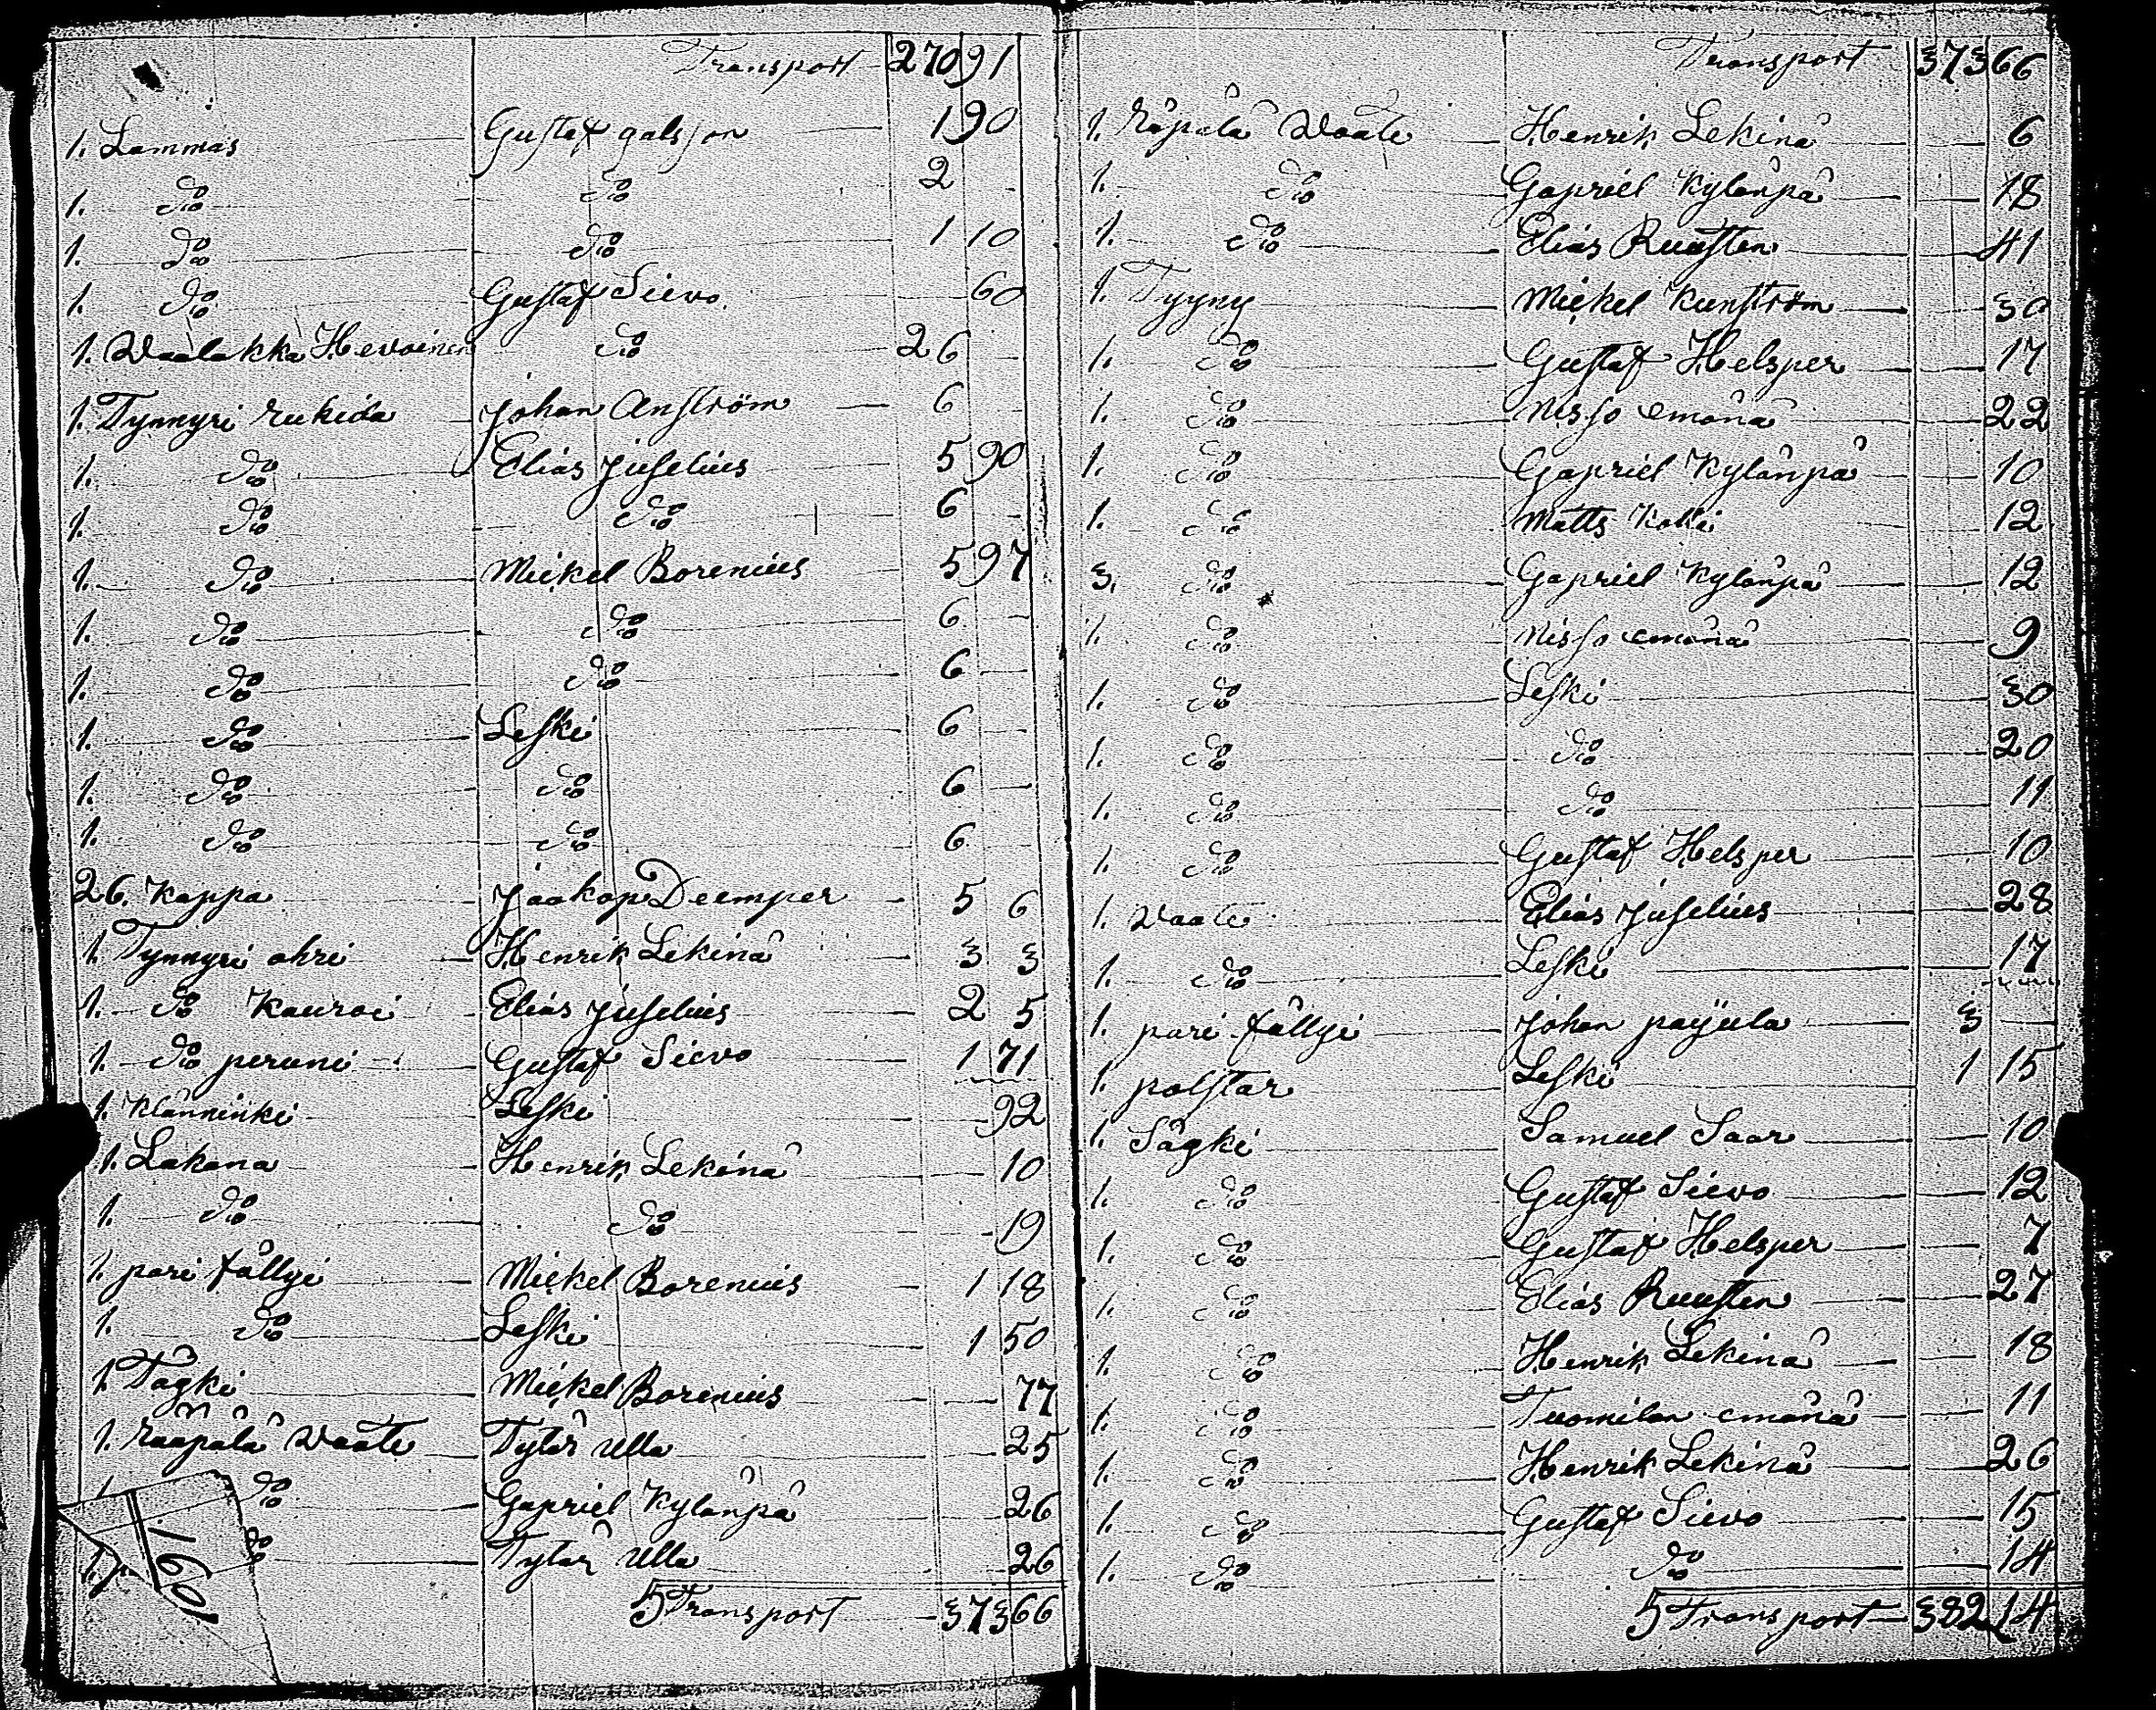 Transport 270 91
1. Lammas Gustaf galsson 1 90
1. do do 2
1. do do 1 10
1. do Gustaf Sievo 60
1. Waalakka Hevoinen do 26
1. Tynnyri rukida Johan Anström 6
1. do Elias Juselius 5 90
1. do do 6
1. do Mickel Borenius 5 97
1. do do 6
1. do do 6
1. do Leski 6
1. do do 6
1. do do 6
26. Kappa Jaakop Deemper 5 6
1. Tynnyri ohri Henrik Lekinä 3 3
1. do Kauroi Elias Juselius 2 5
1. do peruni Gustaf Sievo 1 71
1. Klänninki Leski 92
1. Lakana Henrik Lekinä 10
1. do do 19
1. pari fällyi Mickel Borenius 1 18
1. do Leski 1 50
1. Tägki Mickel Borenius 77
1. Rääpälä Waate Tytär Ulla 25
1. do Gapriel Kylänpä 26
1. do Tytär Ulla 26
5 Transport 373 66
160
Transport 373 66
1. Räpälä Waate Henrik Lekinä 6
1. do Gapriel Kylänpä 18
1. do Elias Ruusten 41
1. Tyyny Mickel Kunström 30
1. do Gustaf Helsper 17
1. do Nisso emänä 22
1. do Gapriel Kylänpä 10
1. do Matts Kokki 12
3. do Gapriel Kylänpä 12
1. do Nisso emänä 9
1. do Leski 30
1. do do 20
1. do do 11
1. do Gustaf Helsper 10
1. Vaate Elias Juselius 28
1. do Leski 17
1. pari fällyi Johan payula 3
1. polstar Leski 1 15
1. Sägki Samuel Saar 10
1. do Gustaf Sievo 12
1. do Gustaf Helsper 7
1. do Elias Ruusten 27
1. do Henrik Lekinä 18
1. do Tuomilan emänä 11
1. do Henrik Lekinä 26
1. do Gustaf Sievo 15
1. do do 14
5 Transport 382 14